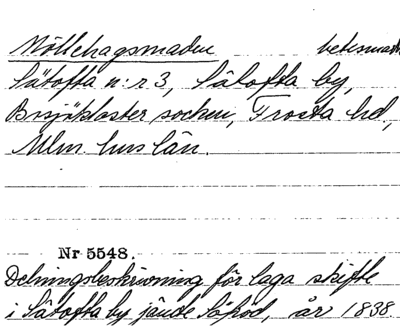 Möllehagsmaden betesmark
Sätofta n:r 3, Sätofta by,
Bosjökloster socken, Frosta hd,
Mlm hus län.
Nr 5548.
Delningsbeskrivning för laga skifte
i Sätofta by jämte år 1838